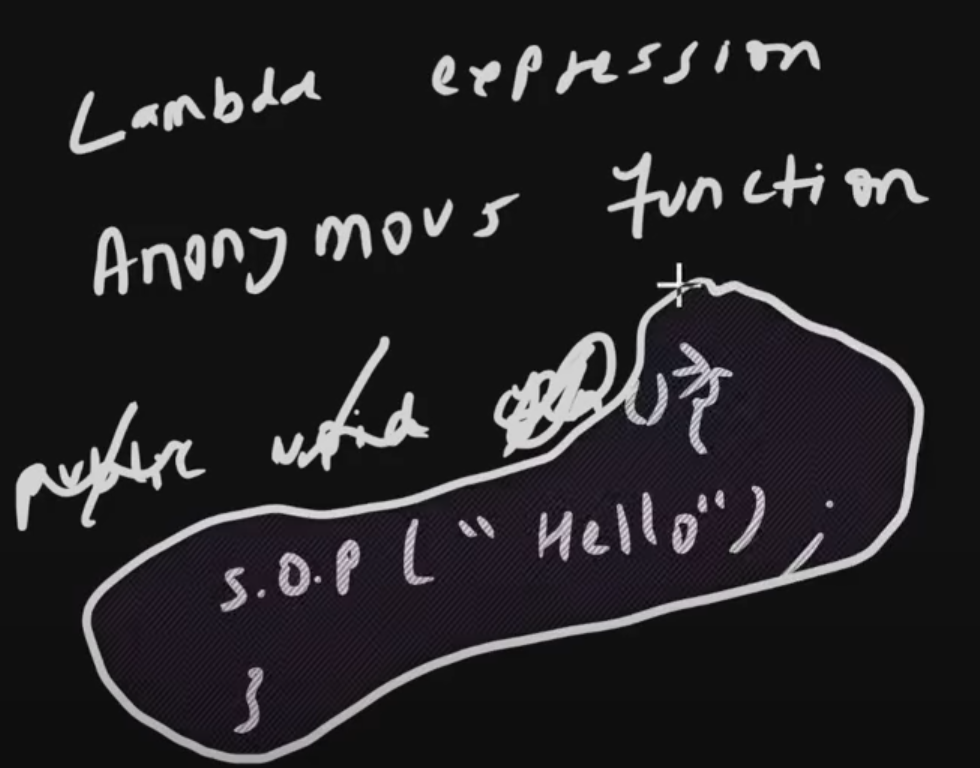 Lambda expression
Anonymous function
public void () → {
S.O.P ("Hello") ;
}